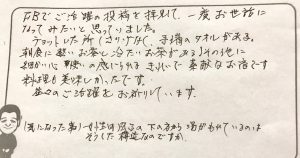 FBでご活躍の投稿を拝見して、一度お世話に
なってみたいと思っていました。
チョットした所(さりげなく、お揃のタオルがあるよ、
朝食に熱いお茶と冷たいお茶がある)その他に
細かい心使いの感じられる きれいで素敵なお宿です
料理も美味しかったです。
益々のご活躍をお祈りしています。
(気になった事)女性風呂の下の方から湯がもれているのは
そうした構造なのですか。